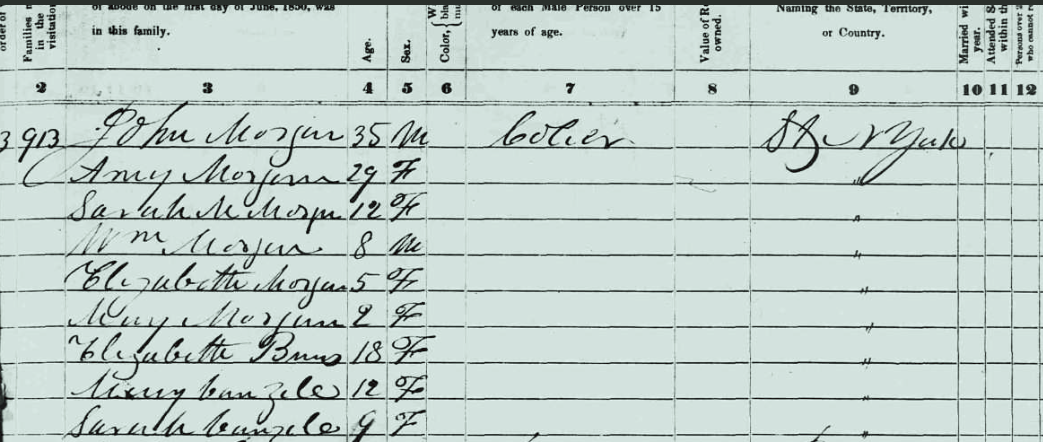 of abode on the first day of June, 1850, was in this family.
of each Male Person over 15 years of age.
Naming the State, Territory, or Country.
order of
Families
in the
visitation
Age.
Sex.
Color,
Value of
owned.
Married
year.
Attended
within the
Persons over
who cannot
2 3 4 5 6 7 8 9 10 11 12
3 913 John Morgan 35 M Colier
Amy Morgan 29 F "
Sarah M Morgn 12 F "
Wm Morgan 8 M "
Elizabeth Morgan 5 F "
Mary Morgan 2 F "
Elizabeth 18 F "
Mary 12 F "
Sarah 9 F "